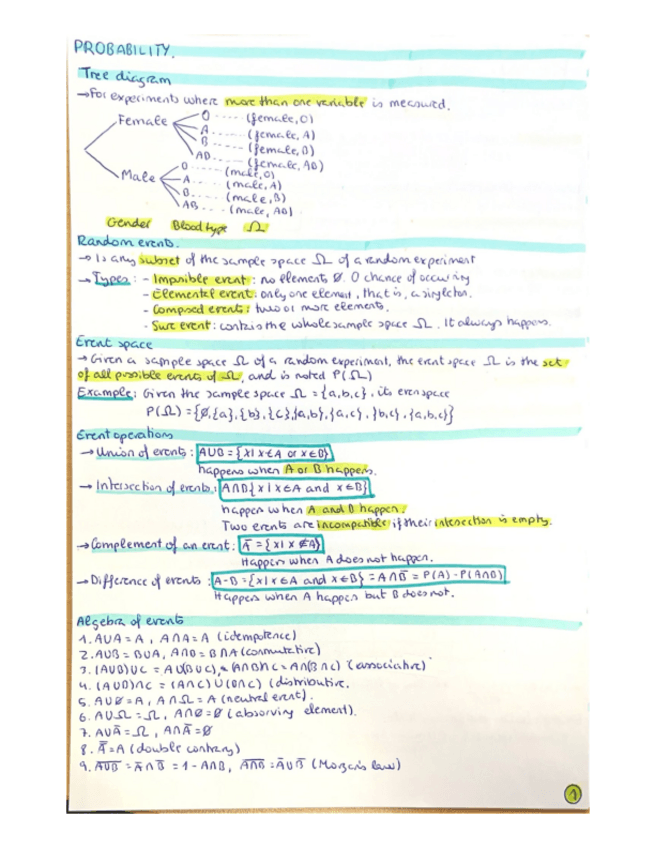 PROBABILITY.
Tree diagram
→For experiments where more than one variable is measured.
Female
O ---- (female, O)
A ----- (female, A)
B ---- (female, B)
AB --- (female, AB)
Male
O ---- (male, O)
A ---- (male, A)
B ---- (male, B)
AB --- (male, AB)
Gender Blood type Ω
Random events.
→ Is any subset of the sample space Ω of a random experiment
→ Types: - Impossible event: no elements Ø. 0 chance of occuring
- Elemental event: only one element, that is, a singleton.
- Composed events: two or more elements.
- Sure event: contains the whole sample space Ω. It always happens.
Event space
→ Given a sample space Ω of a random experiment, the event space Ω is the set
of all possible events of Ω, and is noted P(Ω)
Example: Given the sample space Ω = {a,b,c}, its evenspace
P(Ω) = {Ø,{a},{b},{c},{a,b},{a,c},{b,c},{a,b,c}}
Event operations
→ Union of events: A∪B = {x| x∈A or x∈B}
happens when A or B happens.
→ Intersection of events: A∩B{x | x∈A and x∈B}
happen when A and B happen.
Two events are incompatible if their intersection is empty.
→Complement of an event: Ā = {x| x ∉A}
Happens when A does not happen.
→Difference of events: A-B = {x| x∈A and x∈B} = A∩B̄ = P(A) - P(A∩B)
Happens when A happen but B does not.
Algebra of events
1. A∪A = A, A∩A = A (idempotence)
2. A∪B = B∪A, A∩B = B∩A (conmutative)
3. (A∪B)∪C = A∪(B∪C), (A∩B)∩C = A∩(B∩C) (associative)
4. (A∪B)∩C = (A∩C)∪(B∩C) (distributive.
5. A∪Ø = A, A∩Ω = A (neutral event).
6. A∪Ω = Ω, A∩Ø = Ø (absorving element).
7. A∪Ā = Ω, A∩Ā = Ø
8. A̿ = A (double contrary)
9. A̅∪̅B̅ = Ā∩B̄ = 1 - A∩B, A̅∩̅B̅ = Ā∪B̄ (Morgan's law)
1